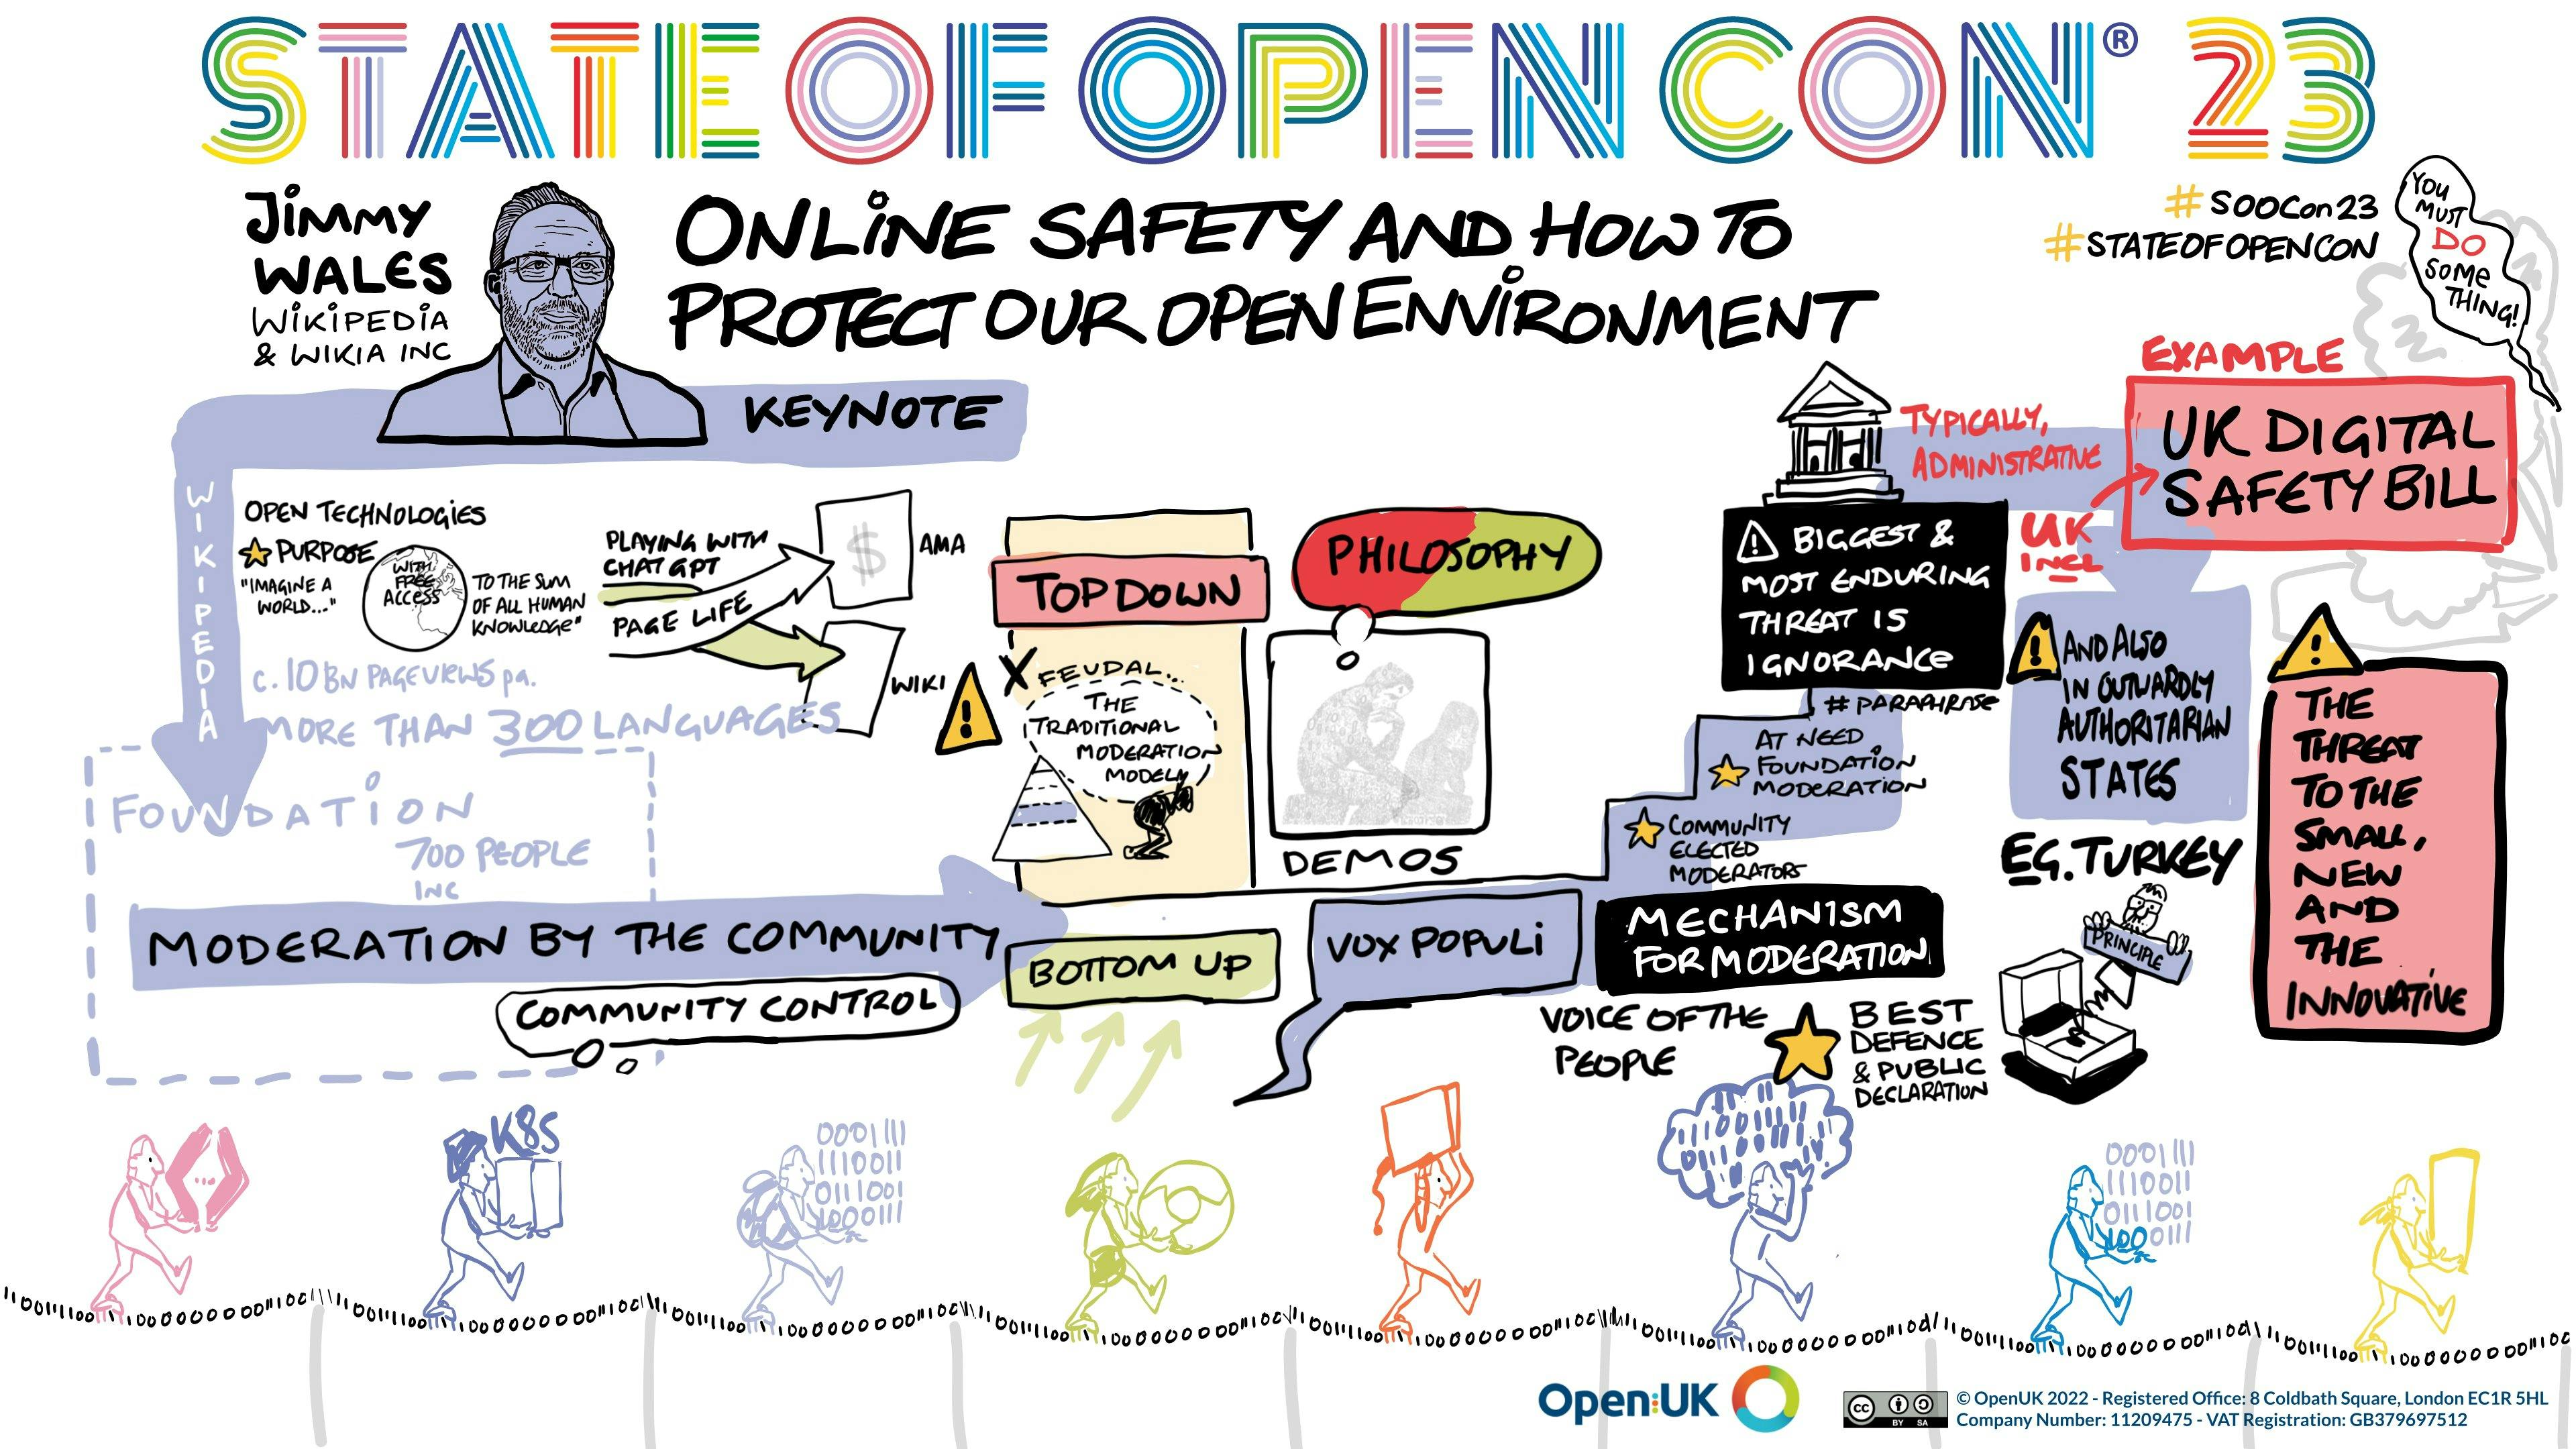 STATE OF OPEN CON® 23
JIMMY
WALES
WIKIPEDIA
& WIKIA INC
ONLINE SAFETY AND HOW TO
PROTECT OUR OPEN ENVIRONMENT
KEYNOTE
# SOOCon23
# STATEOFOPENCON
YOU
MUST
DO
SOME
THING!
WIKIPEDIA
OPEN TECHNOLOGIES
PURPOSE
"IMAGINE A
WORLD..."
WITH
FREE
ACCESS
TO THE SUM
OF ALL HUMAN
KNOWLEDGE"
c. 10 BN PAGEVIEWS pa.
MORE THAN 300 LANGUAGES
PLAYING WITH
CHAT GPT
PAGE LIFE
$
AMA
WIKI
FOUNDATION
700 PEOPLE
INC
MODERATION BY THE COMMUNITY
COMMUNITY CONTROL
TOP DOWN
X FEUDAL...
THE
TRADITIONAL
MODERATION
MODEL
BOTTOM UP
PHILOSOPHY
DEMOS
VOX POPULI
VOICE OF THE
PEOPLE
MECHANISM
FOR MODERATION
COMMUNITY
ELECTED
MODERATORS
AT NEED
FOUNDATION
MODERATION
BEST
DEFENCE
& PUBLIC
DECLARATION
BIGGEST &
MOST ENDURING
THREAT IS
IGNORANCE
# PARAPHRASE
TYPICALLY,
ADMINISTRATIVE
UK
INCL
EXAMPLE
UK DIGITAL
SAFETY BILL
AND ALSO
IN OUTWARDLY
AUTHORITARIAN
STATES
EG. TURKEY
PRINCIPLE
THE
THREAT
TO THE
SMALL,
NEW
AND
THE
INNOVATIVE
K8S
0001111
1110011
0111001
1000111
0001111
1110011
0111001
1000111
Open:UK
CC BY SA
© OpenUK 2022 - Registered Office: 8 Coldbath Square, London EC1R 5HL
Company Number: 11209475 - VAT Registration: GB379697512